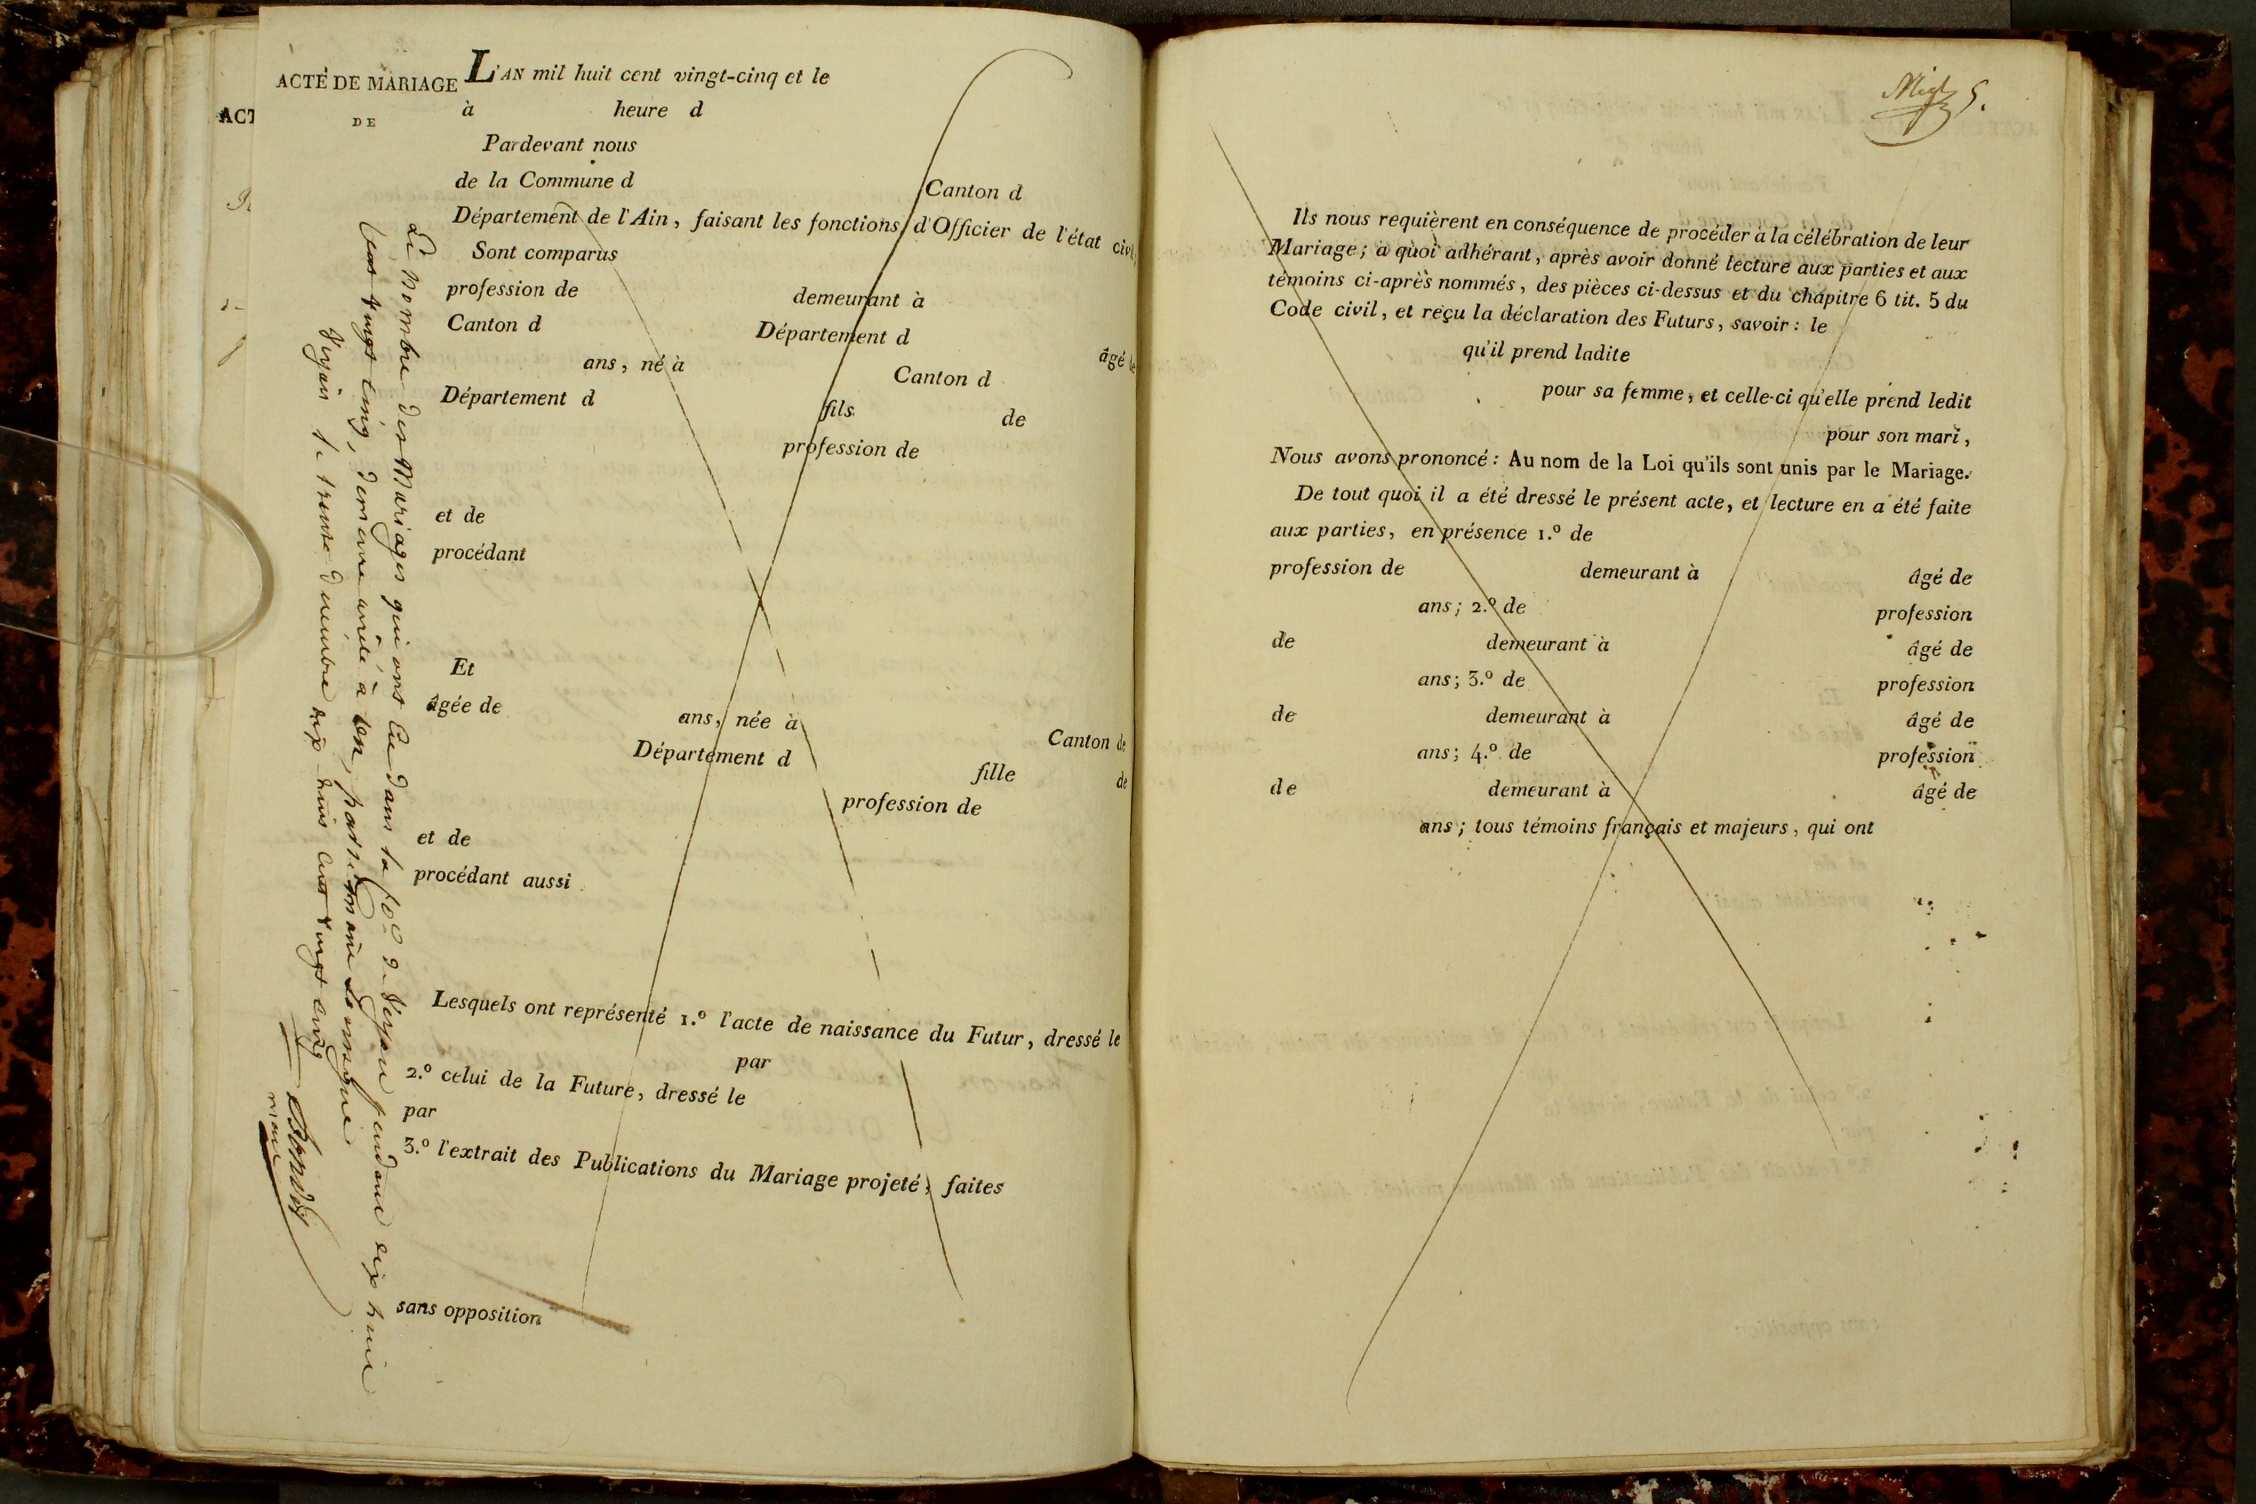 ACTE DE MARIAGE
DE
L'AN mil huit cent vingt-cinq et le
à heure d
Pardevant nous
de la Commune d Canton d
Département de l'Ain, faisant les fonctions d'Officier de l'état civil,
Sont comparus
profession de demeurant à
Canton d Département d âgé de
ans, né à Canton d
Département d fils de
profession de
et de
procédant
Et
âgée de ans, née à Canton de
Département d fille de
profession de
et de
procédant aussi
Lesquels ont représenté 1.º l'acte de naissance du Futur, dressé le
par
2.º celui de la Future, dressé le
par
3.º l'extrait des Publications du Mariage projeté, faites
sans opposition
Le nombre des Mariages qui ont Eu dans la Con.e de Versjau pendant dix huit
cent vingt cinq, demeure arrêté à par
le trente décembre dix huit cent vingt cinq
maire
ACT
5.
Ils nous requièrent en conséquence de procéder à la célébration de leur
Mariage; à quoi adhérant, après avoir donné lecture aux parties et aux
témoins ci-après nommés, des pièces ci-dessus et du chapitre 6 tit. 5 du
Code civil, et reçu la déclaration des Futurs, savoir: le
qu'il prend ladite
pour sa femme, et celle-ci qu'elle prend ledit
pour son mari,
Nous avons prononcé: Au nom de la Loi qu'ils sont unis par le Mariage.
De tout quoi il a été dressé le présent acte, et lecture en a été faite
aux parties, en présence 1.º de
profession de demeurant à âgé de
ans; 2.º de profession
de demeurant à âgé de
ans; 3.º de profession
de demeurant à âgé de
ans; 4.º de profession
de demeurant à âgé de
ans; tous témoins français et majeurs, qui ont